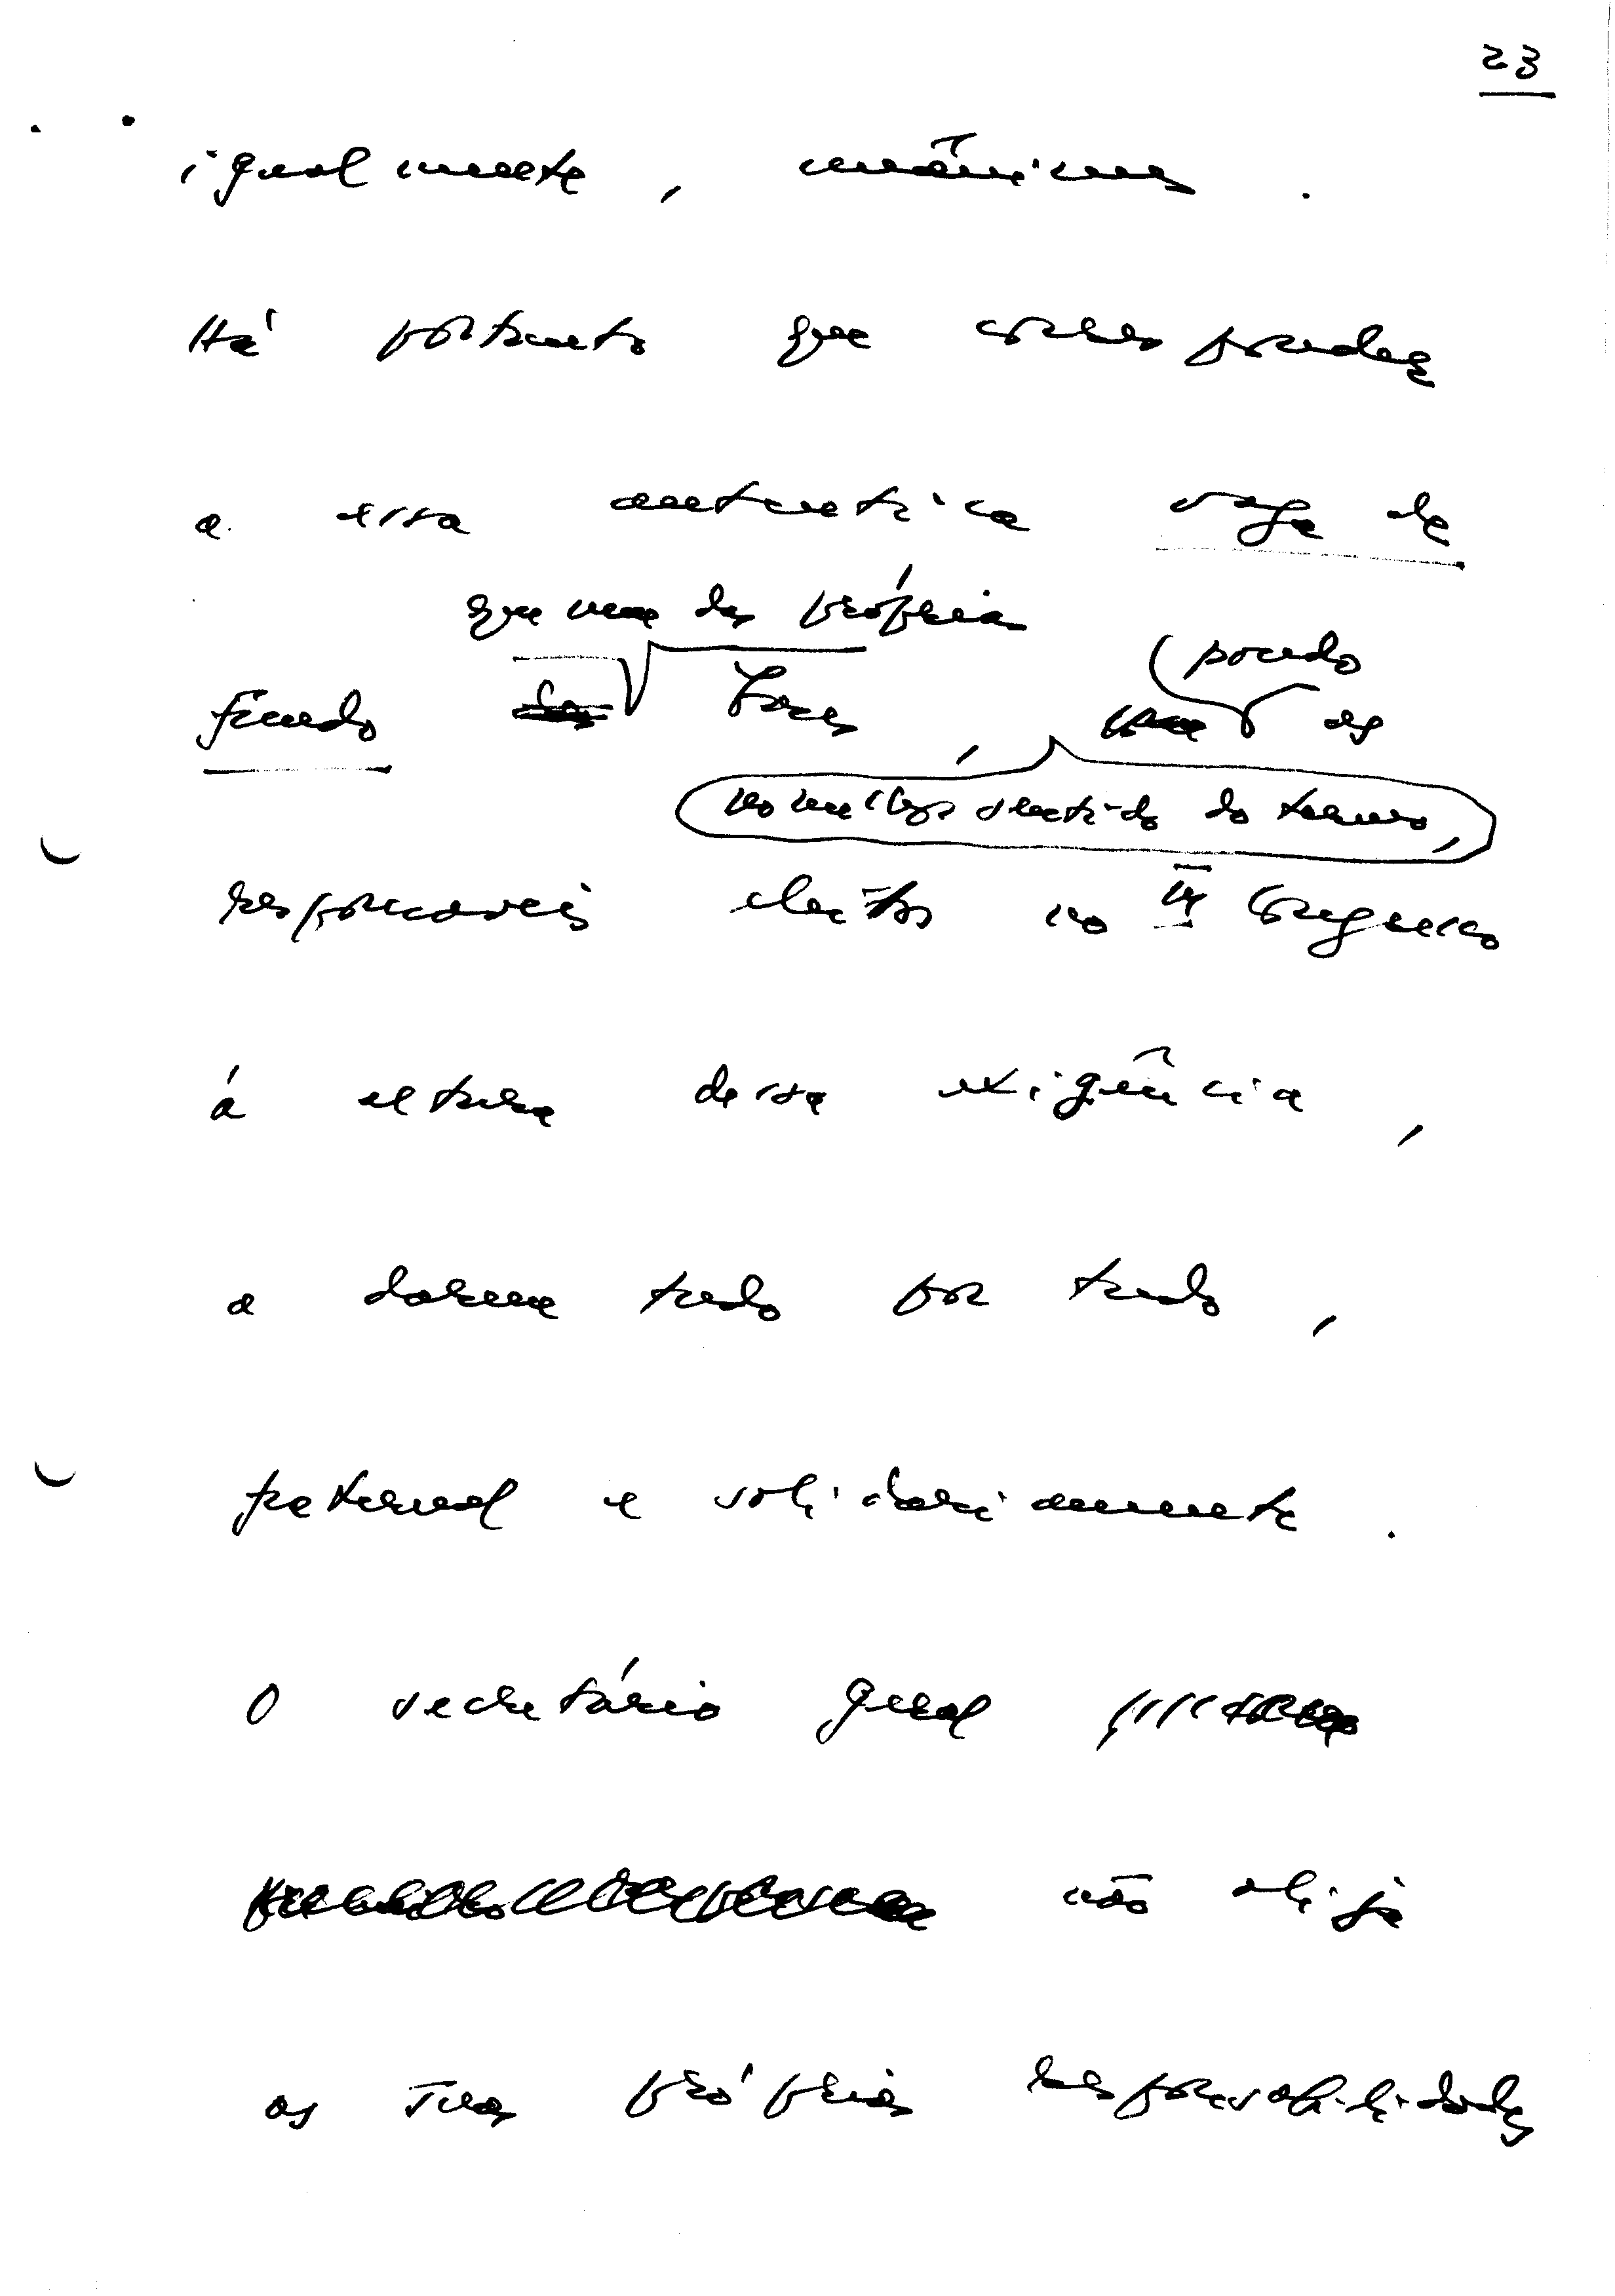 23
igualmente, unânimes.
Há portanto que corresponder
a essa autentica vaga de
que vem das próprias
pondo
fundo das bases, os
no melhor sentido do termo,
responsaveis eleitos no IV Congresso
á altura dessa exigência,
a darem tudo por tudo,
fraternal e solidariamente.
O secretário geral
não alija
as suas próprias responsabilidades